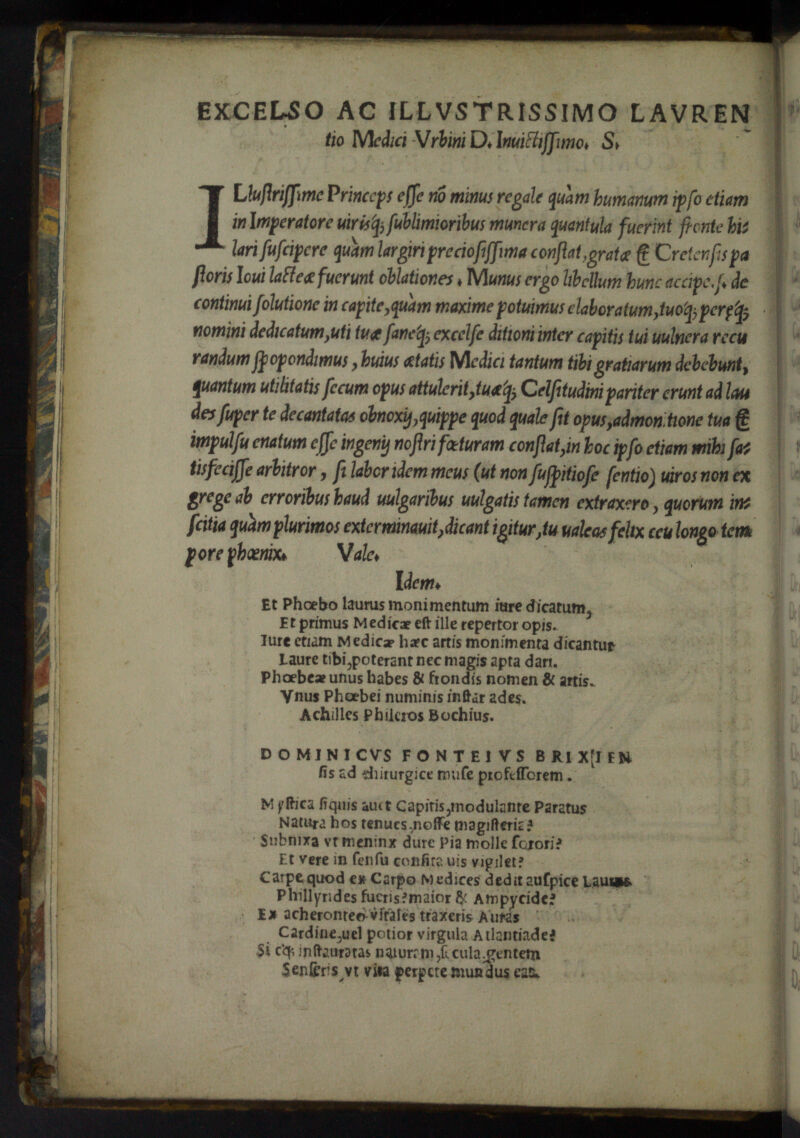 EXCELSO AC ILLVSTRISSIMO LAVREN
tio Medici Vrbini D. Inuictissimo. S.
ILlustrissime Princeps esse nō minus regale quàm humanum ipso etiam
in Imperatore uirisq; sublimioribus munera quantula fuerint fronte hi⸗
lari suscipere quàm largiri preciosissima constat, gratæ & Cretensis pa
storis Ioui lacteæ fuerunt oblationes. Munus ergo libellum hunc accipe.s. de
continui solutione in capite, quàm maxime potuimus elaboratum, tuoq; perpq;
nomini dedicatum, uti tuæ saneq; excelse ditioni inter capitis tui uulnera recu
randum spopondimus, huius ætatis Medici tantum tibi gratiarum debebunt,
quantum utilitatis secum opus attulerit, tuæq; Celsitudini pariter erunt ad lau
des super te decantatas obnoxij, quippe quod quale sit opus, admonitione tua &
impulsu enatum esse ingenij nostri fœturam constat, in hoc ipso etiam mihi sa⸗
tisfecisse arbitror, si labor idem meus (ut non suspitiose sentio) uiros non ex
grege ab erroribus haud uulgaribus uulgatis tamen extraxero, quorum in⸗
scitia quàm plurimos exterminauit, dicant igitur, tu ualeas felix ceu longo tem
pore phœnix. Vale.
Idem.
Et Phœbo laurus monimentum iure dicatum,
Et primus Medicæ est ille repertor opis.
Iure etiam Medicæ hæc artis monimenta dicantur
Laure tibi, poterant nec magis apta dari.
Phœbeæ unus habes & frondis nomen & artis.
Vnus Phœbei numinis instar ades.
Achilles Phileros Bochius.
DOMINICVS FONTEIVS BRIXIEN
sis ad chirurgice muse professorem.
Mystica siquis auct Capitis, modulante Paratus
Natura hos tenues, nosse magisteria?
Subnixa vt meninx dure Pia molle sorori?
Et vere in sensu consita uis vigilet?
Carpe quod ex Carpo Medices dedit auspice Laurus
Phillyrides fueris? maior & Ampycide?
Ex acheronteo vitales traxeris Auras
Cardine, uel potior virgula Atlantiade?
Si c̄q; instauratas naturam, secula, gentem
Senseris, vt vita perpete mundus eat.